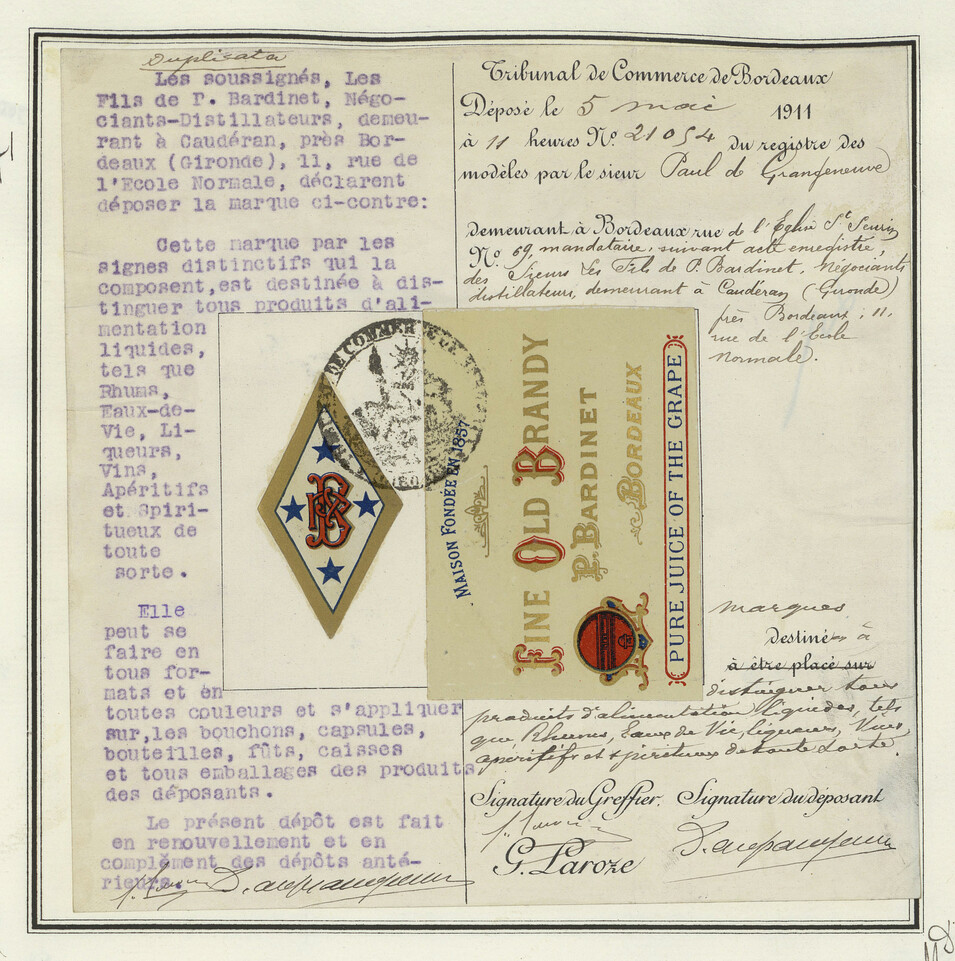 Duplicata
Les soussignés, Les
Fils de P. Bardinet, Négo-
ciants-Distillateurs, demeu-
rant à Caudéran, près Bor-
deaux (Gironde), 11, rue de
l'Ecole Normale, déclarent
déposer la marque ci-contre:
Cette marque par les
signes distinctifs qui la
composent,est destinée à dis-
tinguer tous produits d'ali-
mentation
liquides,
tels que
Rhums,
Eaux-de-
Vie, Li-
queurs,
Vins,
Apéritifs
et Spiri-
tueux de
toute
sorte.
Elle
peut se
faire en
tous for-
mats et en
toutes couleurs et s'appliquer
sur,les bouchons, capsules,
bouteilles, fûts, caisses
et tous emballages des produits
des déposants.
Le présent dépôt est fait
en renouvellement et en
complément des dépôts anté-
rieurs.
Tribunal de Commerce de Bordeaux
Déposé le 5 mai 1911
à 11 heures No. 21054 du registre des
modèles par le sieur Paul de Grangeneuve
demeurant à Bordeaux rue de l'Église St Seurin
No. 69, mandataire, suivant acte enregistré,
des Sieurs Les Fils de P. Bardinet, Négociants
distillateurs, demeurant à Caudéran (Gironde)
près Bordeaux, 11,
rue de l'École
Normale.
DE COMMERCE DE
MAISON FONDÉE EN 1857
FINE OLD BRANDY
P. BARDINET
BORDEAUX
PURE JUICE OF THE GRAPE
marques
destinées à
à être placé sur
distinguer tous
produits d'alimentation liquides, tels
que Rhums, Eaux de Vie, liqueurs, Vins,
apéritifs et spiritueux de toute sorte.
Signature du Greffier. Signature du déposant
G. Laroze